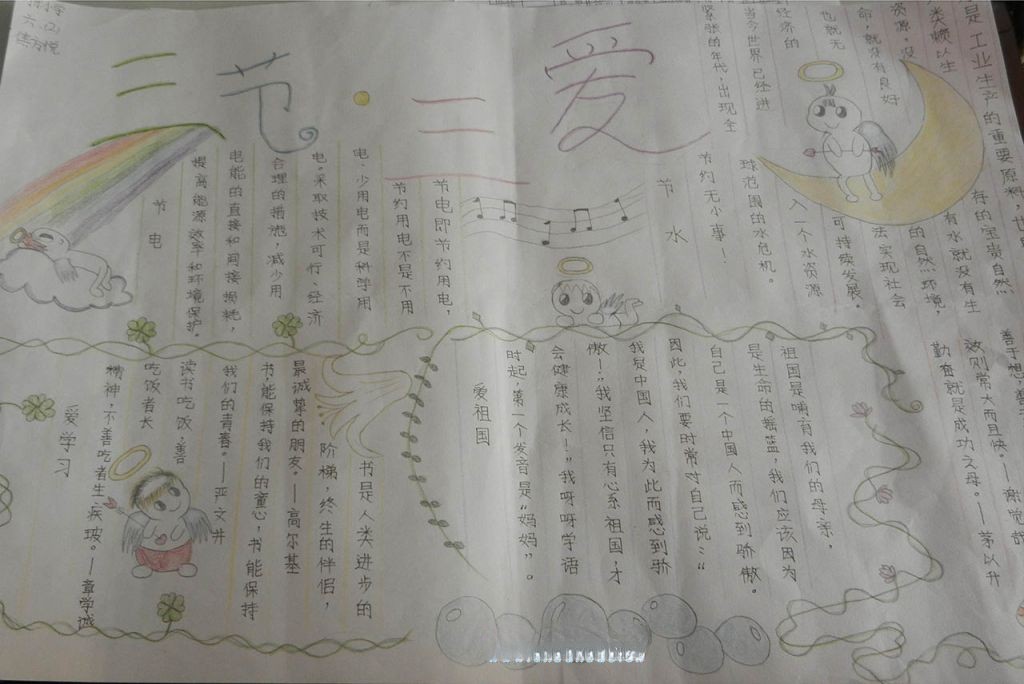 三节·三爱
是工业生产的重要原料,
类赖以生存的宝贵自然
资源,没有水就没有生
命,就没有良好的自然环境,
也就无法实现社会
经济的可持续发展。
当今世界已经进入一个水资源
紧张的年代,出现全
球范围的水危机。
节约无小事!
节水
节电即节约用电,
节约用电不是不用
电、少用电而是科学用
电。采取技术可行、经济
合理的措施,减少用
电能的直接和间接损耗,
提高能源效率和环境保护。
节电
善于想,善于
效则常大而且快。—谢觉哉
勤奋就是成功之母。—茅以升
祖国是哺育我们的母亲,
是生命的摇篮,我们应该因为
自己是一个中国人而感到骄傲。
因此,我们要时常对自己说:“
我是中国人,我为此而感到骄
傲!”我坚信只有心系祖国,才
会健康成长!”我呀呀学语
时起,第一个发音是“妈妈”。
爱祖国
书是人类进步的
阶梯,终生的伴侣,
最诚挚的朋友。—高尔基
书能保持我们的童心,书能保持
我们的青春。—严文井
读书吃饭,善
吃饭者长
精神,不善吃者生疾玻。—章学诚
爱学习